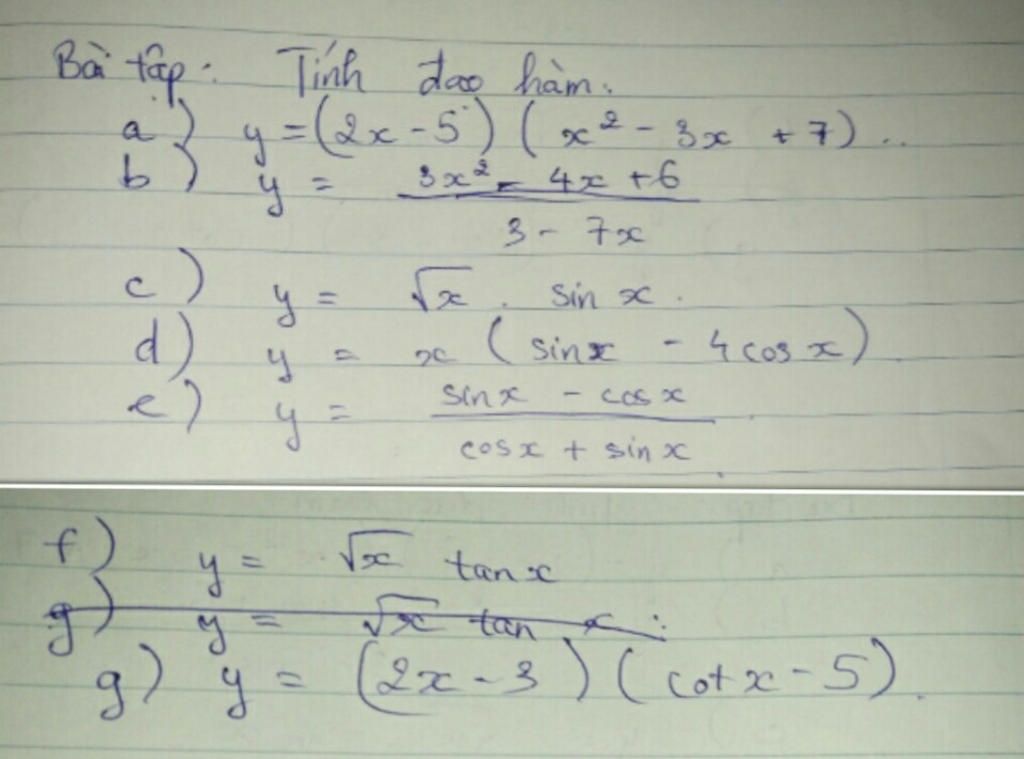 Bài tập: Tính đạo hàm.
a) y = (2x - 5) (x² - 3x + 7)..
b) y = 3x² - 4x + 6
3 - 7x
c) y = √x . sin x.
d) y = x (sinx - 4cos x)
e) y = sinx - cos x
cosx + sin x
f) y = √x tan x
g) y = √x tan x:
g) y = (2x - 3) (cotx - 5).